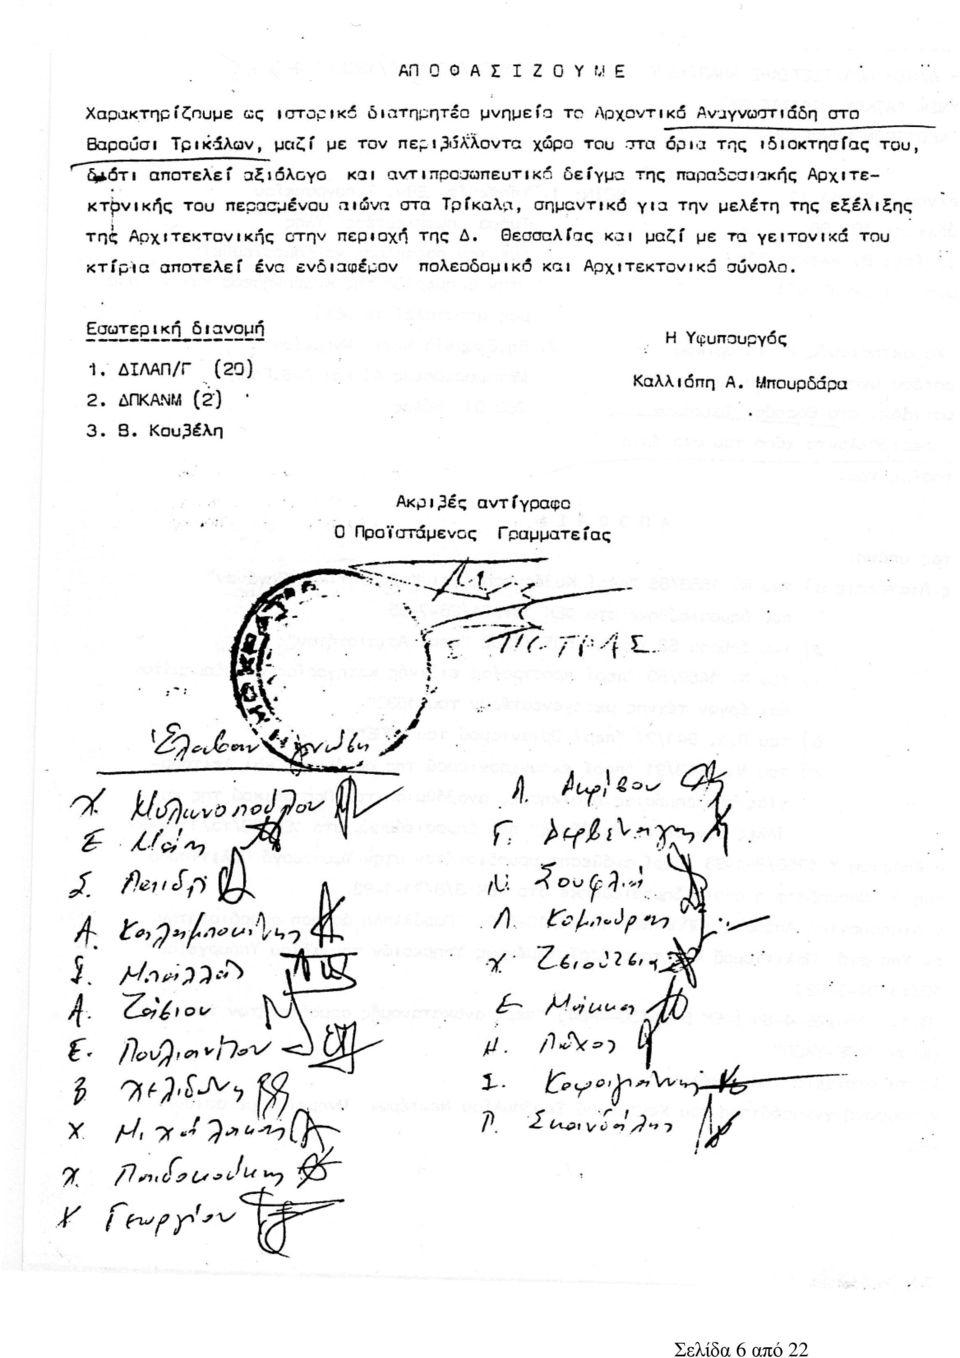 ΑΠΟΦΑΣΙΖΟΥΜΕ
Χαρακτηρίζουμε ως ιστορικό διατηρητέο μνημείο το Αρχοντικό Αναγνωστιάδη στο
Βαρούσι Τρικάλων, μαζί με τον περιβάλλοντα χώρο του στα όρια της ιδιοκτησίας του,
διότι αποτελεί αξιόλογο και αντιπροσωπευτικό δείγμα της παραδοσιακής Αρχιτε-
κτονικής του περασμένου αιώνα στα Τρίκαλα, σημαντικό για την μελέτη της εξέλιξης
της Αρχιτεκτονικής στην περιοχή της Δ. Θεσσαλίας και μαζί με τα γειτονικά του
κτίρια αποτελεί ένα ενδιαφέρον πολεοδομικό και Αρχιτεκτονικό σύνολο.
Εσωτερική διανομή
Η Υφυπουργός
1. ΔΙΛΑΠ/Γ (20)
Καλλιόπη Α. Μπουρδάρα
2. ΔΠΚΑΝΜ (2)
3. Β. Κουβέλη
Ακριβές αντίγραφο
Ο Προϊστάμενος Γραμματείας
Έλαβαν γνώση
Χ. Μυλωνοπούλου
Λ. Ακρίβου
Ε.
Γ.
Σ.
Ν. Σουφλή
Α. Καλαμποκίνης
Λ. Καμπούρη
Μπαλλά
Χ. Ζσιούτσια
Α. Ζάσιου
Ε. Μάκκα
Ε. Πουλιανίτου
Β Χελιδώνη
Ι. Καραγιάννη
Χ. Μιχαλάκης
Ρ. Σκανδάλη
Χ. Παιδακάκη
Χ Γεωργίου
Σελίδα 6 από 22